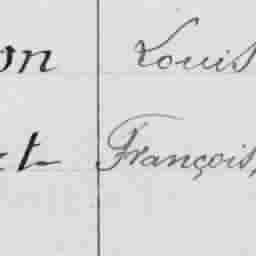 on Louis
et François,